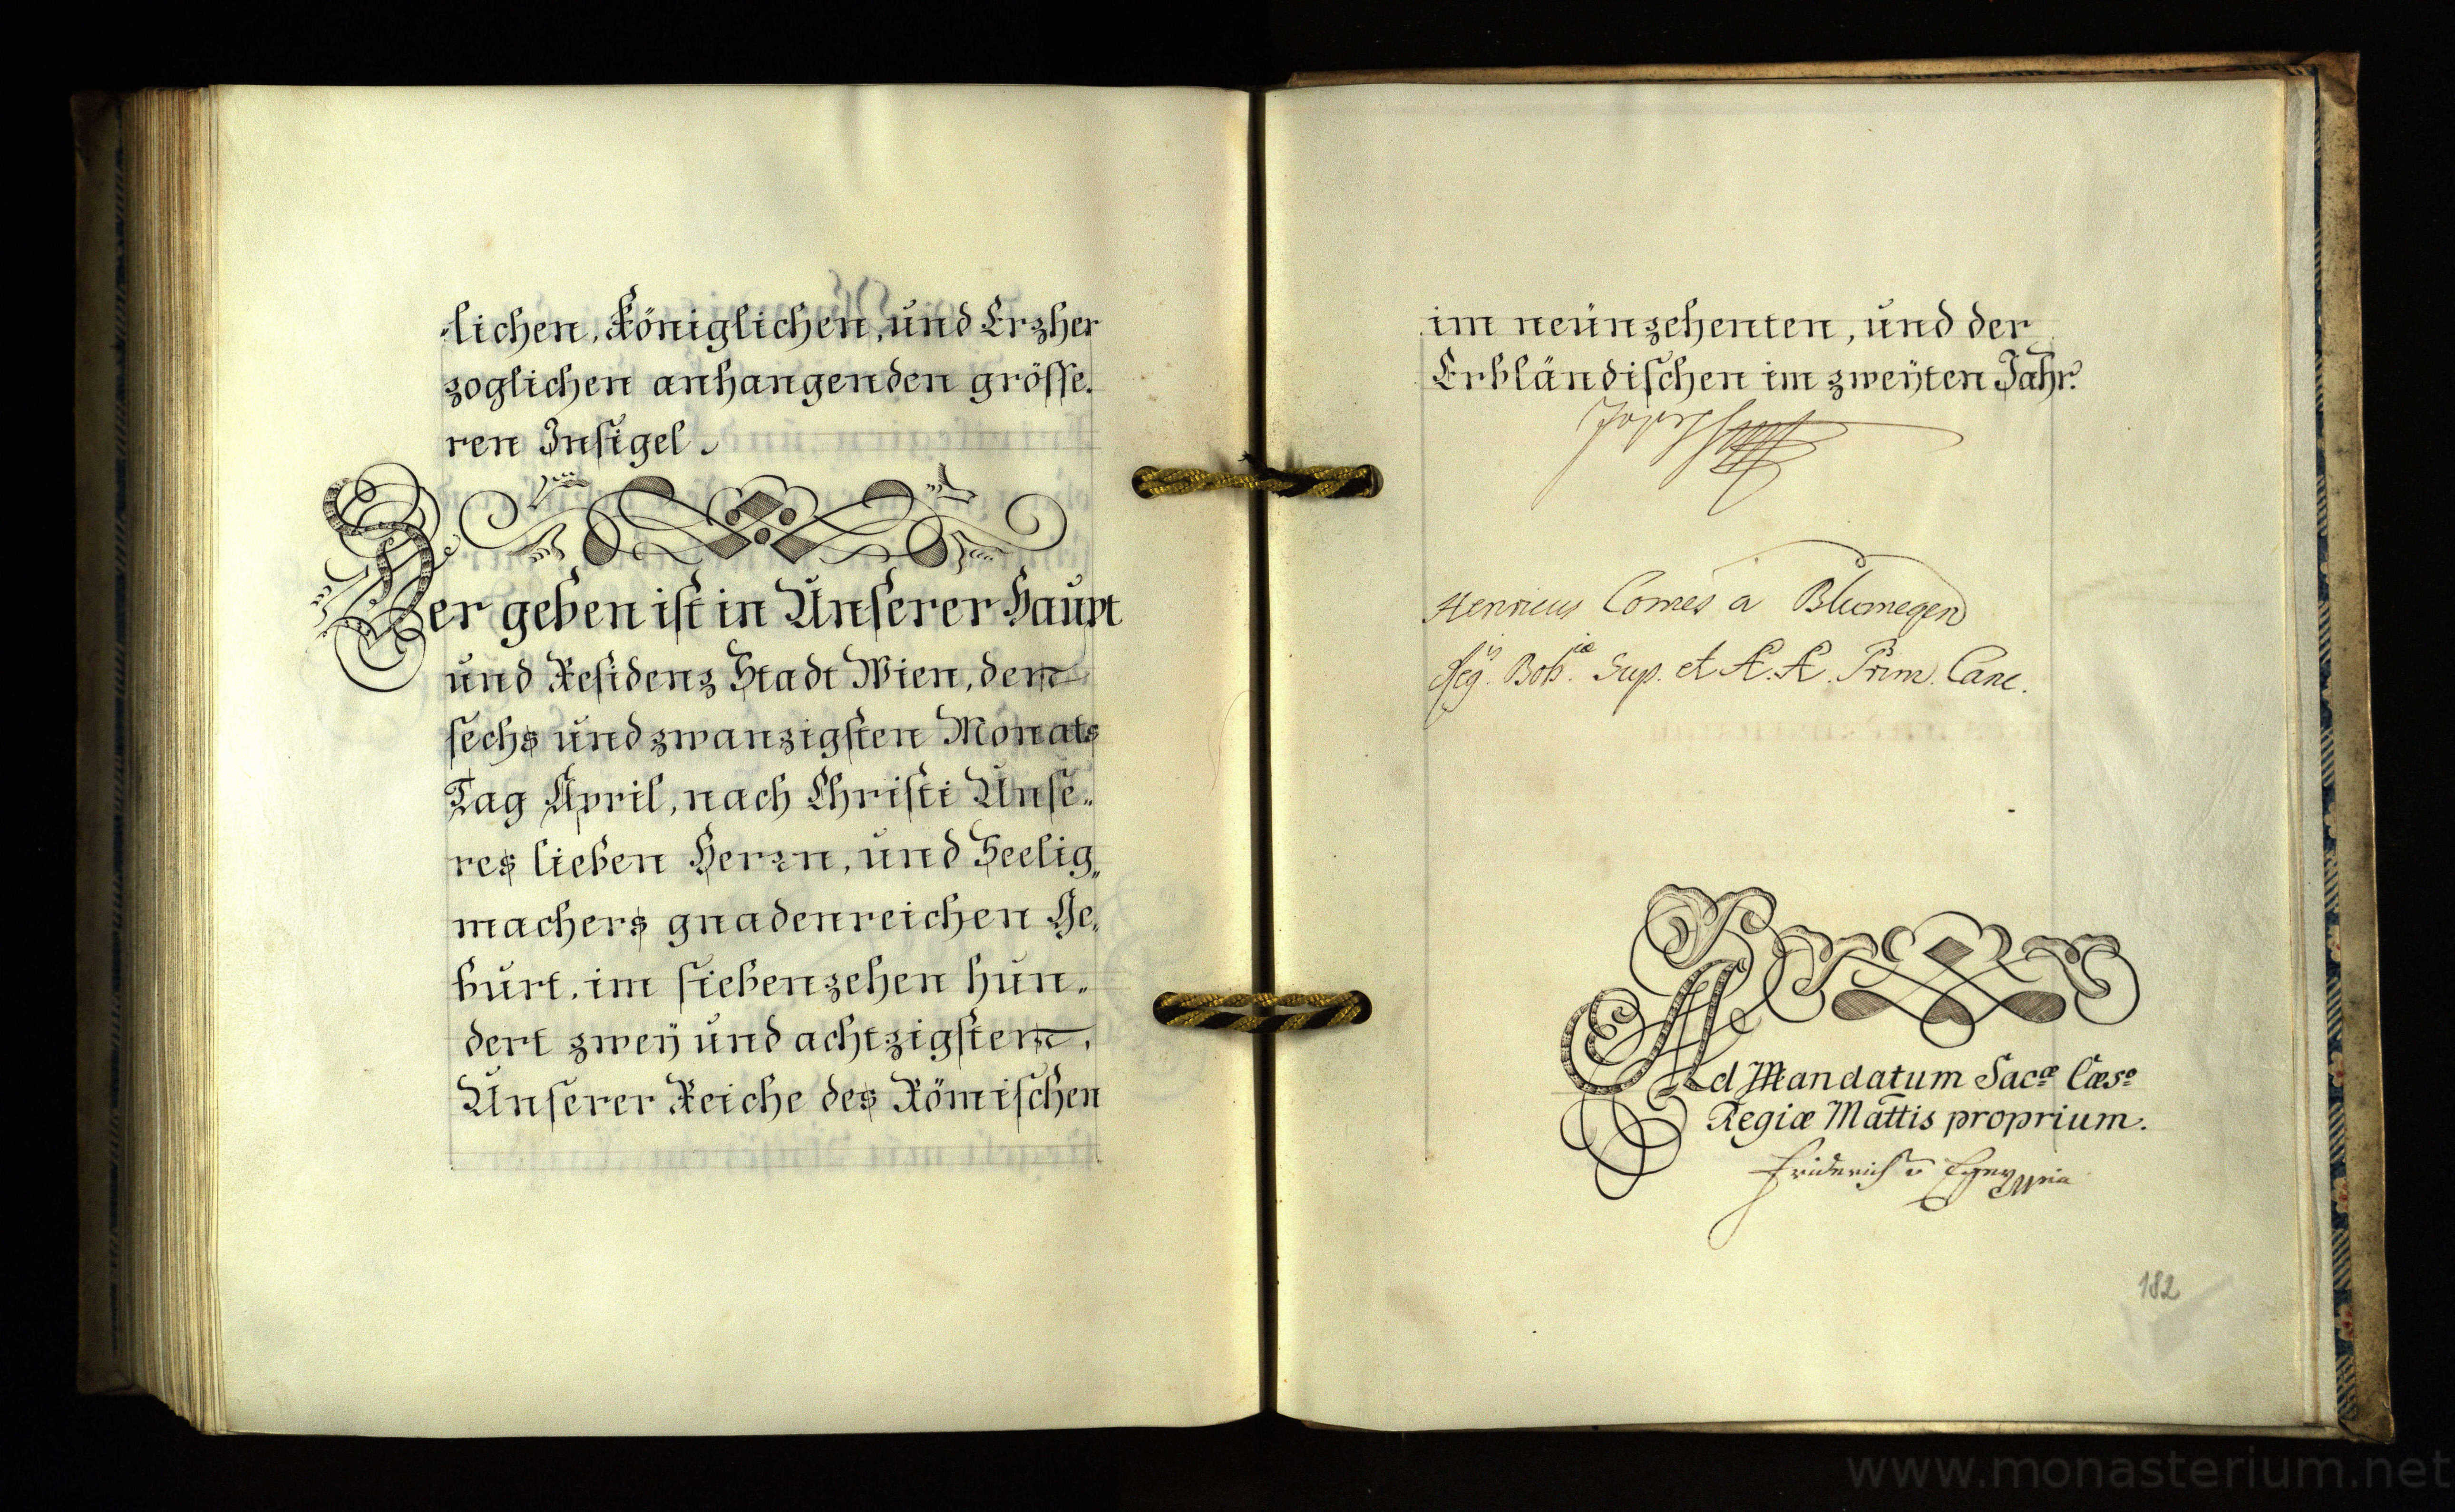 -lichen, Königlichen, und Erzher
zoglichen anhangenden grösse-
ren Insigel.
Der geben ist in Unserer Haupt
und Residenz Stadt Wien, den
sechs und zwanzigsten Monats
Tag April, nach Christi Unse-
res lieben Herrn, und Seelig-
machers gnadenreichen Ge-
burt, im siebenzehen hun-
dert zweÿ und achtzigsten,
Unserer Reiche des Römischen
im neünzehenten, und der
Erbländischen im zweÿten Jahr.
Joseph
Henricus Comes a Blumegen
Reg. Boh. Sup. et A. A. Prim. Canc.
Ad Mandatum Sacæ Cæso
Regiæ Mattis proprium.
Friderich v
182
www.monasterium.net